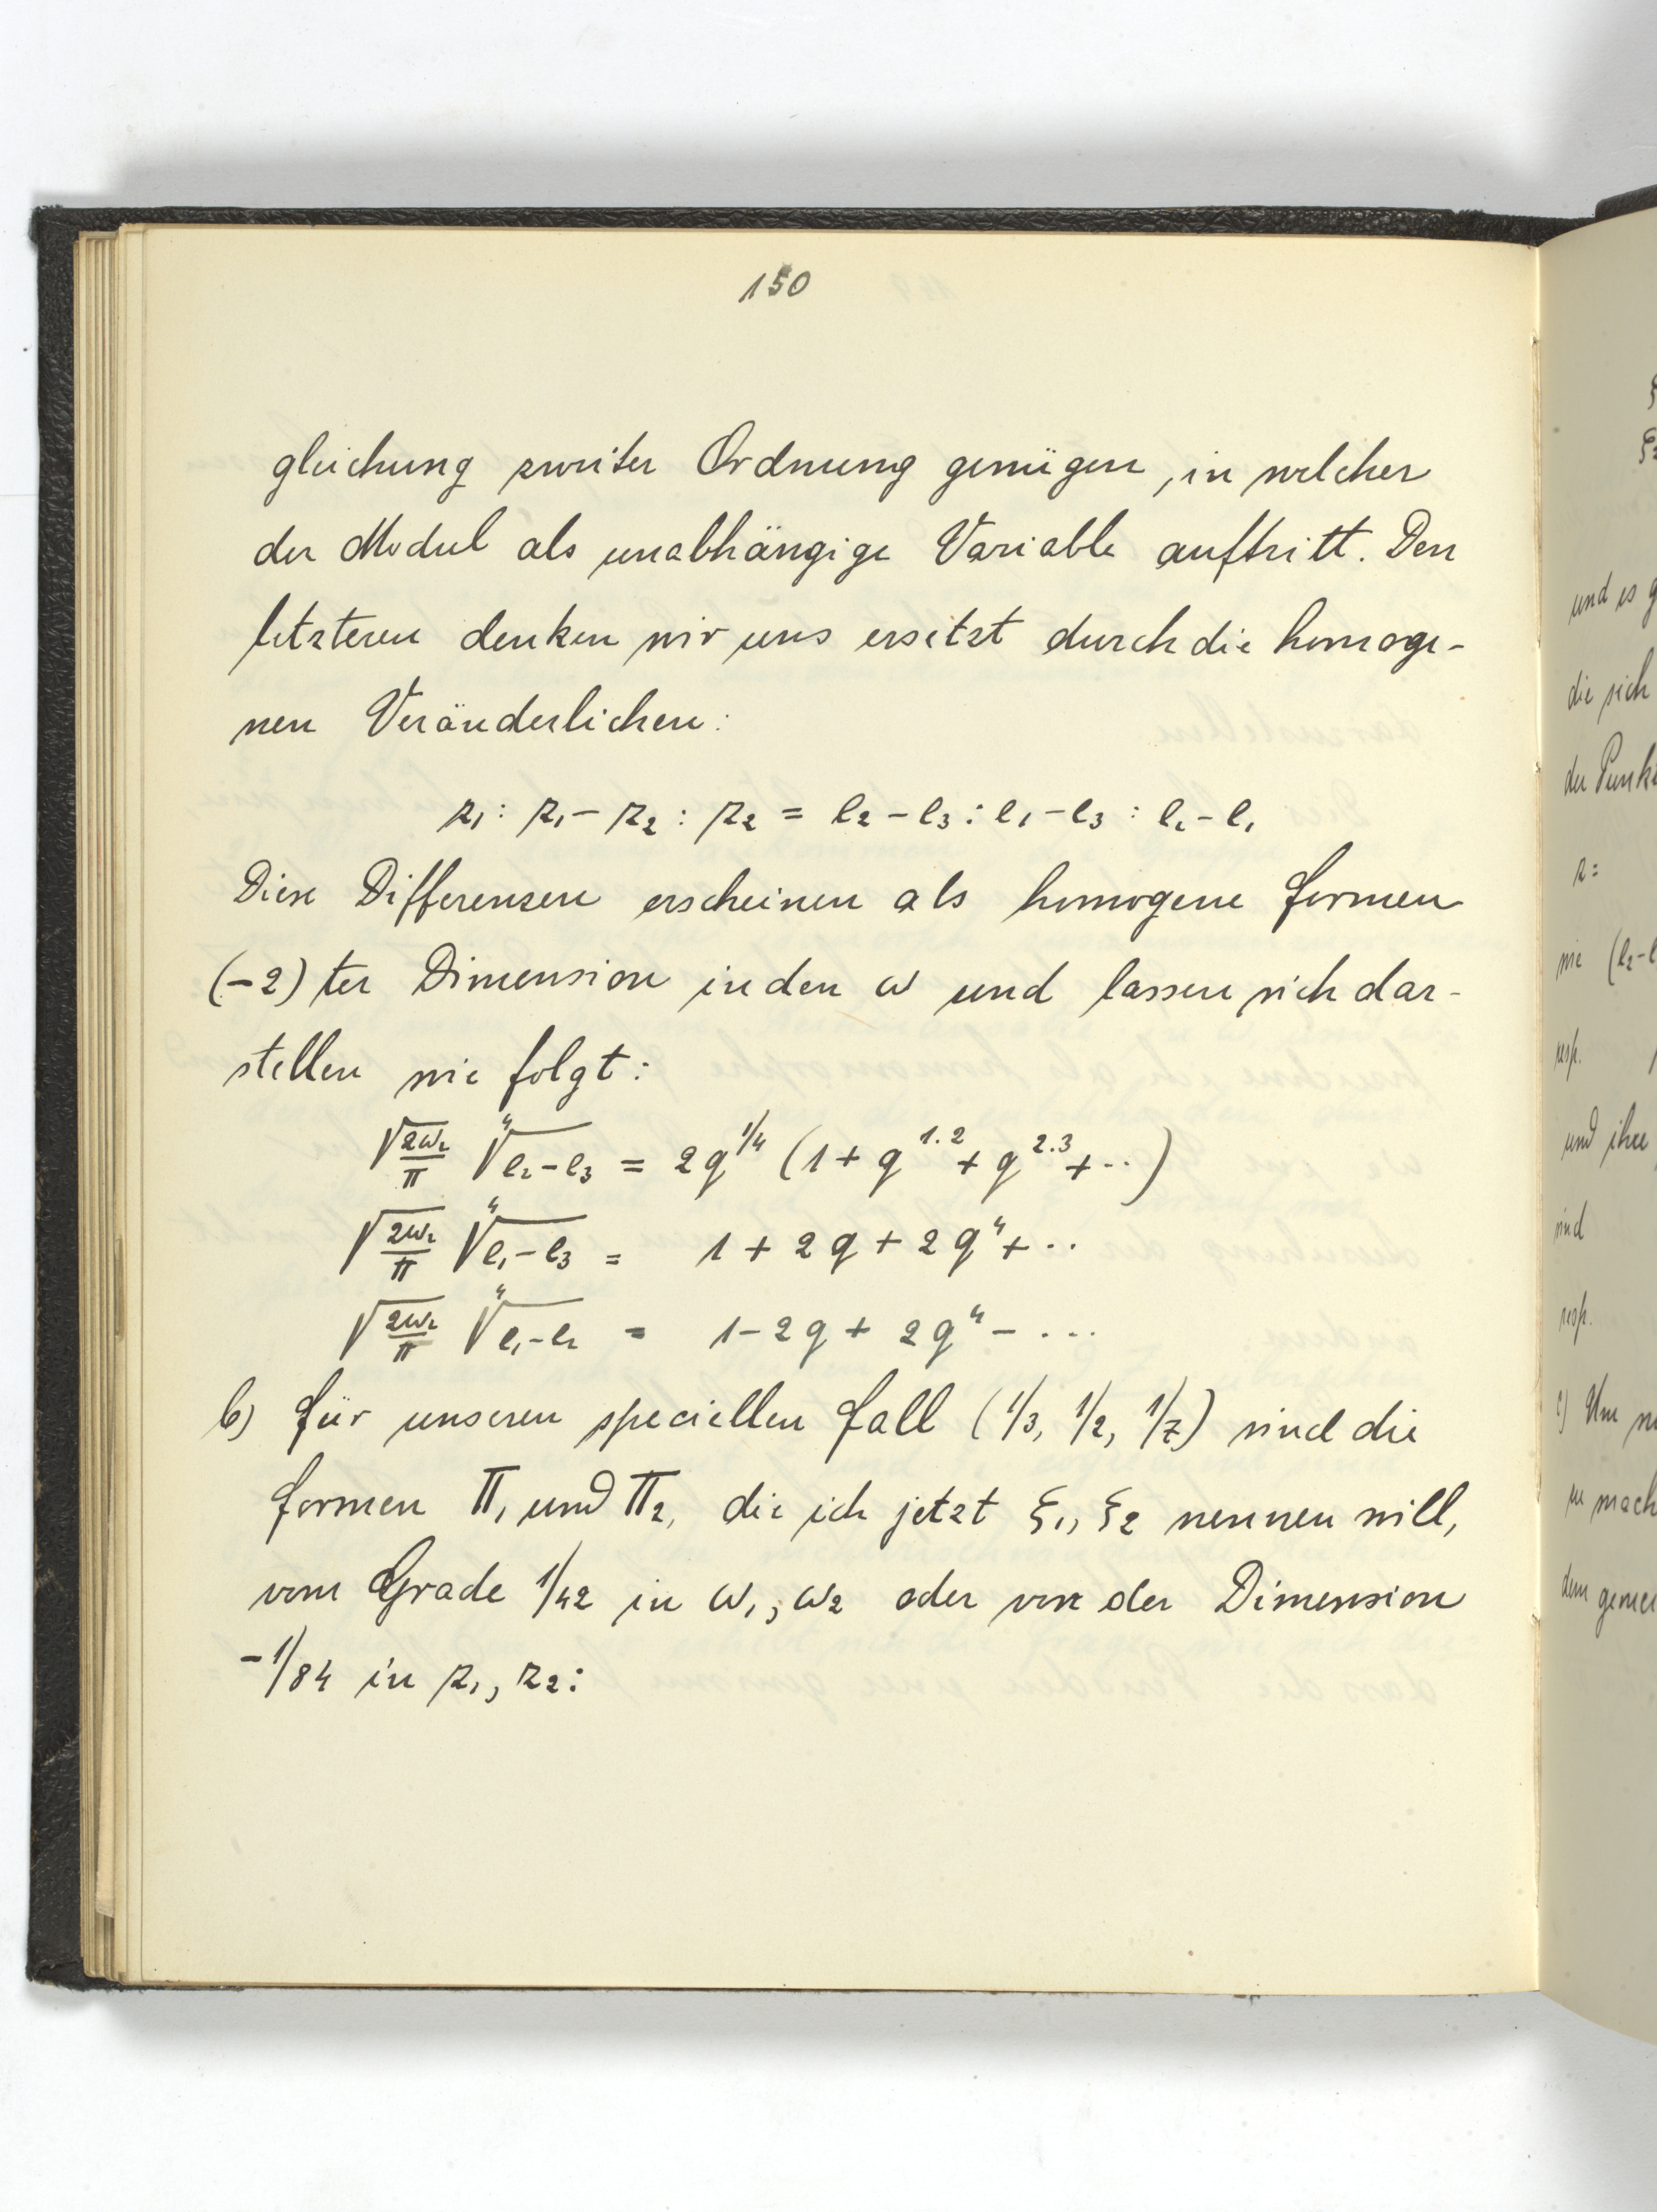 150
gleichung zweiter Ordnung genügen, in welcher
der Modul als unabhängige Variable auftritt. Den
letzteren denken wir uns ersetzt durch die homoge-
nen Veränderlichen:
z₁ : z₁ - z₂ : z₂ = e₂ - e₃ : e₁ - e₃ : e₂ - e₁
Diese Differenzen erscheinen als homogene Formen
(-2)ter Dimension in den ω und lassen sich dar-
stellen wie folgt:
√(2ω₂/π) ∜(e₂-e₃) = 2q^{1/4} (1 + q^{1.2} + q^{2.3} + ··)
√(2ω₂/π) ∜(e₁-e₃) = 1 + 2q + 2q⁴ + ··
√(2ω₂/π) ∜(e₁-e₂) = 1 - 2q + 2q⁴ - ···
b) Für unseren speciellen Fall (1/3, 1/2, 1/7) sind die
Formen Π₁ und Π₂, die ich jetzt ξ₁, ξ₂ nennen will,
vom Grade 1/42 in ω₁, ω₂ oder von der Dimension
-1/84 in z₁, z₂:
und es g
die sich
der Punk
z =
wie (e₂-e
resp.
und ihre
sind
resp.
c) Um
zu mach
dem gemei